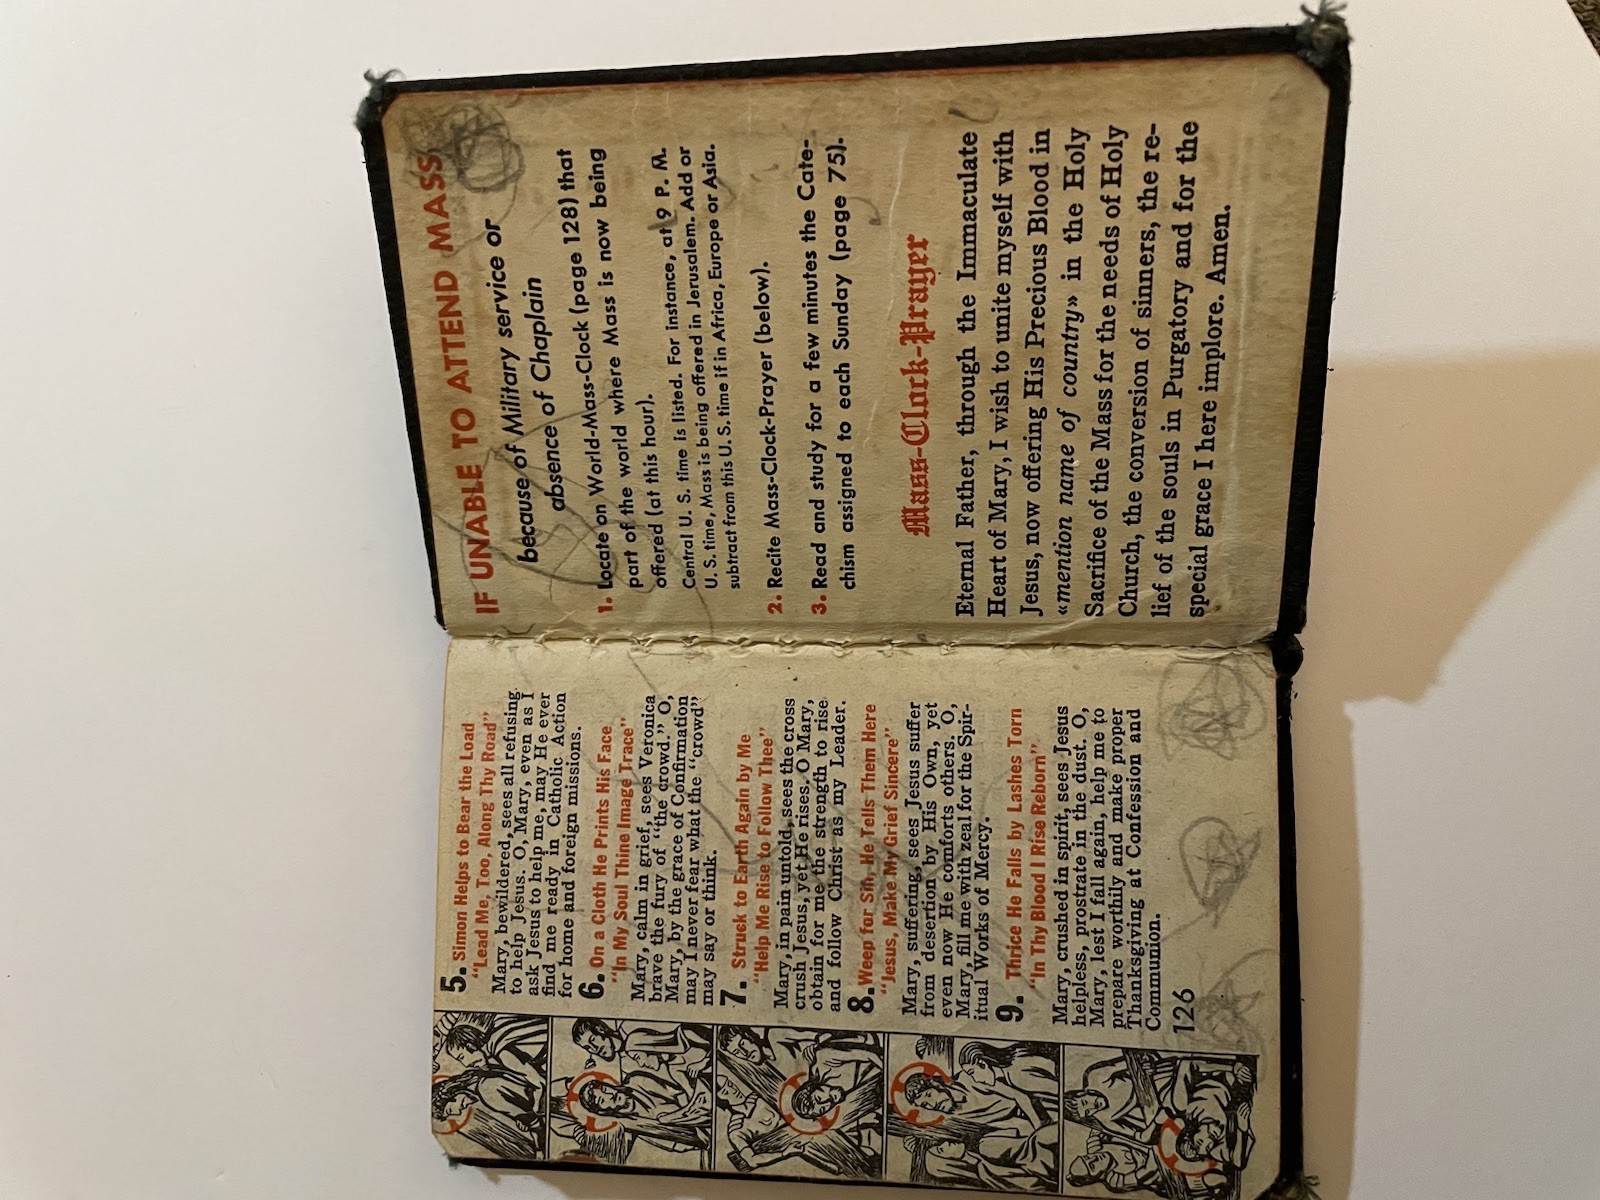 5. Simon Helps to Bear the Load
"Lead Me, Too, Along Thy Road"
Mary, bewildered, sees all refusing
to help Jesus. O, Mary, even as I
ask Jesus to help me, may He ever
find me ready in Catholic Action
for home and foreign missions.
6. On a Cloth He Prints His Face
"In My Soul Thine Image Trace"
Mary, calm in grief, sees Veronica
brave the fury of "the crowd." O,
Mary, by the grace of Confirmation
may I never fear what the "crowd"
may say or think.
7. Struck to Earth Again by Me
"Help Me Rise to Follow Thee"
Mary, in pain untold, sees the cross
crush Jesus, yet He rises. O Mary,
obtain for me the strength to rise
and follow Christ as my Leader.
8. Weep for Sin, He Tells Them Here
"Jesus, Make My Grief Sincere"
Mary, suffering, sees Jesus suffer
from desertion by His Own, yet
even now He comforts others. O,
Mary, fill me with zeal for the Spir-
itual Works of Mercy.
9. Thrice He Falls by Lashes Torn
"In Thy Blood I Rise Reborn"
Mary, crushed in spirit, sees Jesus
helpless, prostrate in the dust. O,
Mary, lest I fall again, help me to
prepare worthily and make proper
Thanksgiving at Confession and
Communion.
126
IF UNABLE TO ATTEND MASS
because of Military service or
absence of Chaplain
1. Locate on World-Mass-Clock (page 128) that
part of the world where Mass is now being
offered (at this hour).
Central U. S. time is listed. For instance, at 9 P. M.
U. S. time, Mass is being offered in Jerusalem. Add or
subtract from this U. S. time if in Africa, Europe or Asia.
2. Recite Mass-Clock-Prayer (below).
3. Read and study for a few minutes the Cate-
chism assigned to each Sunday (page 75).
Mass-Clock-Prayer
Eternal Father, through the Immaculate
Heart of Mary, I wish to unite myself with
Jesus, now offering His Precious Blood in
«mention name of country» in the Holy
Sacrifice of the Mass for the needs of Holy
Church, the conversion of sinners, the re-
lief of the souls in Purgatory and for the
special grace I here implore. Amen.